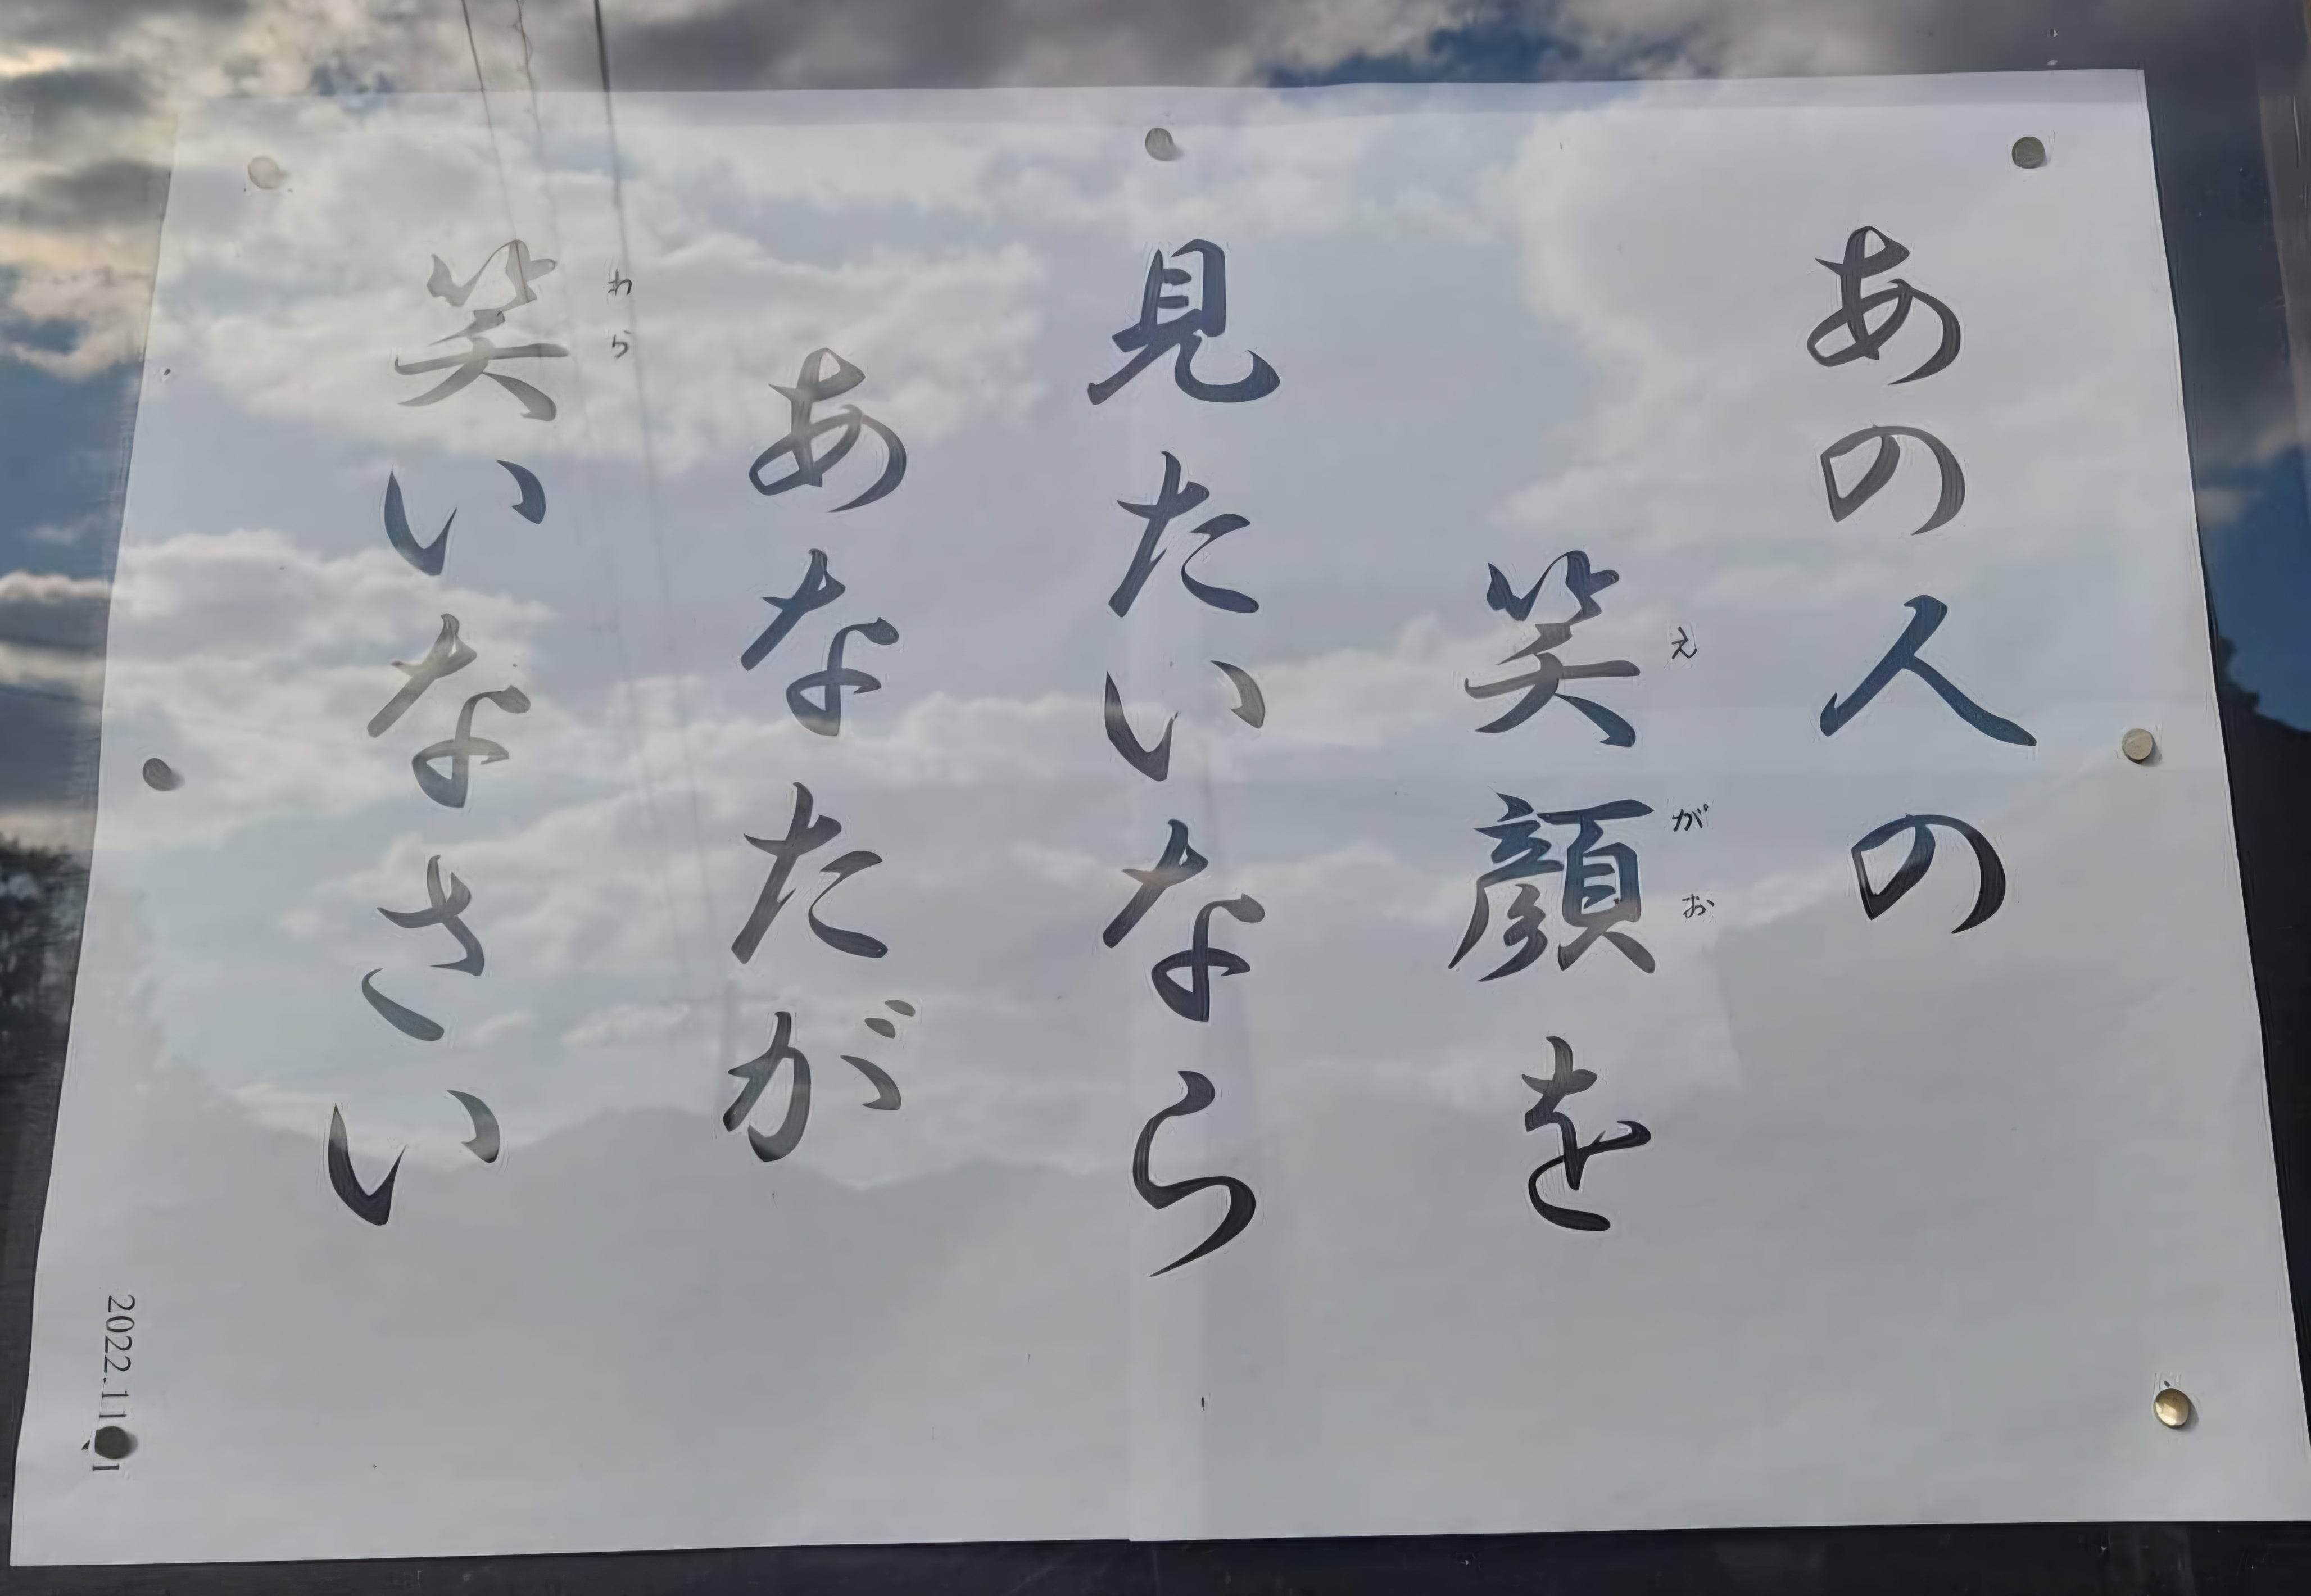 あの人の
笑顔を
えがお
見たいなら
あなたが
笑いなさい
わら
2022.11